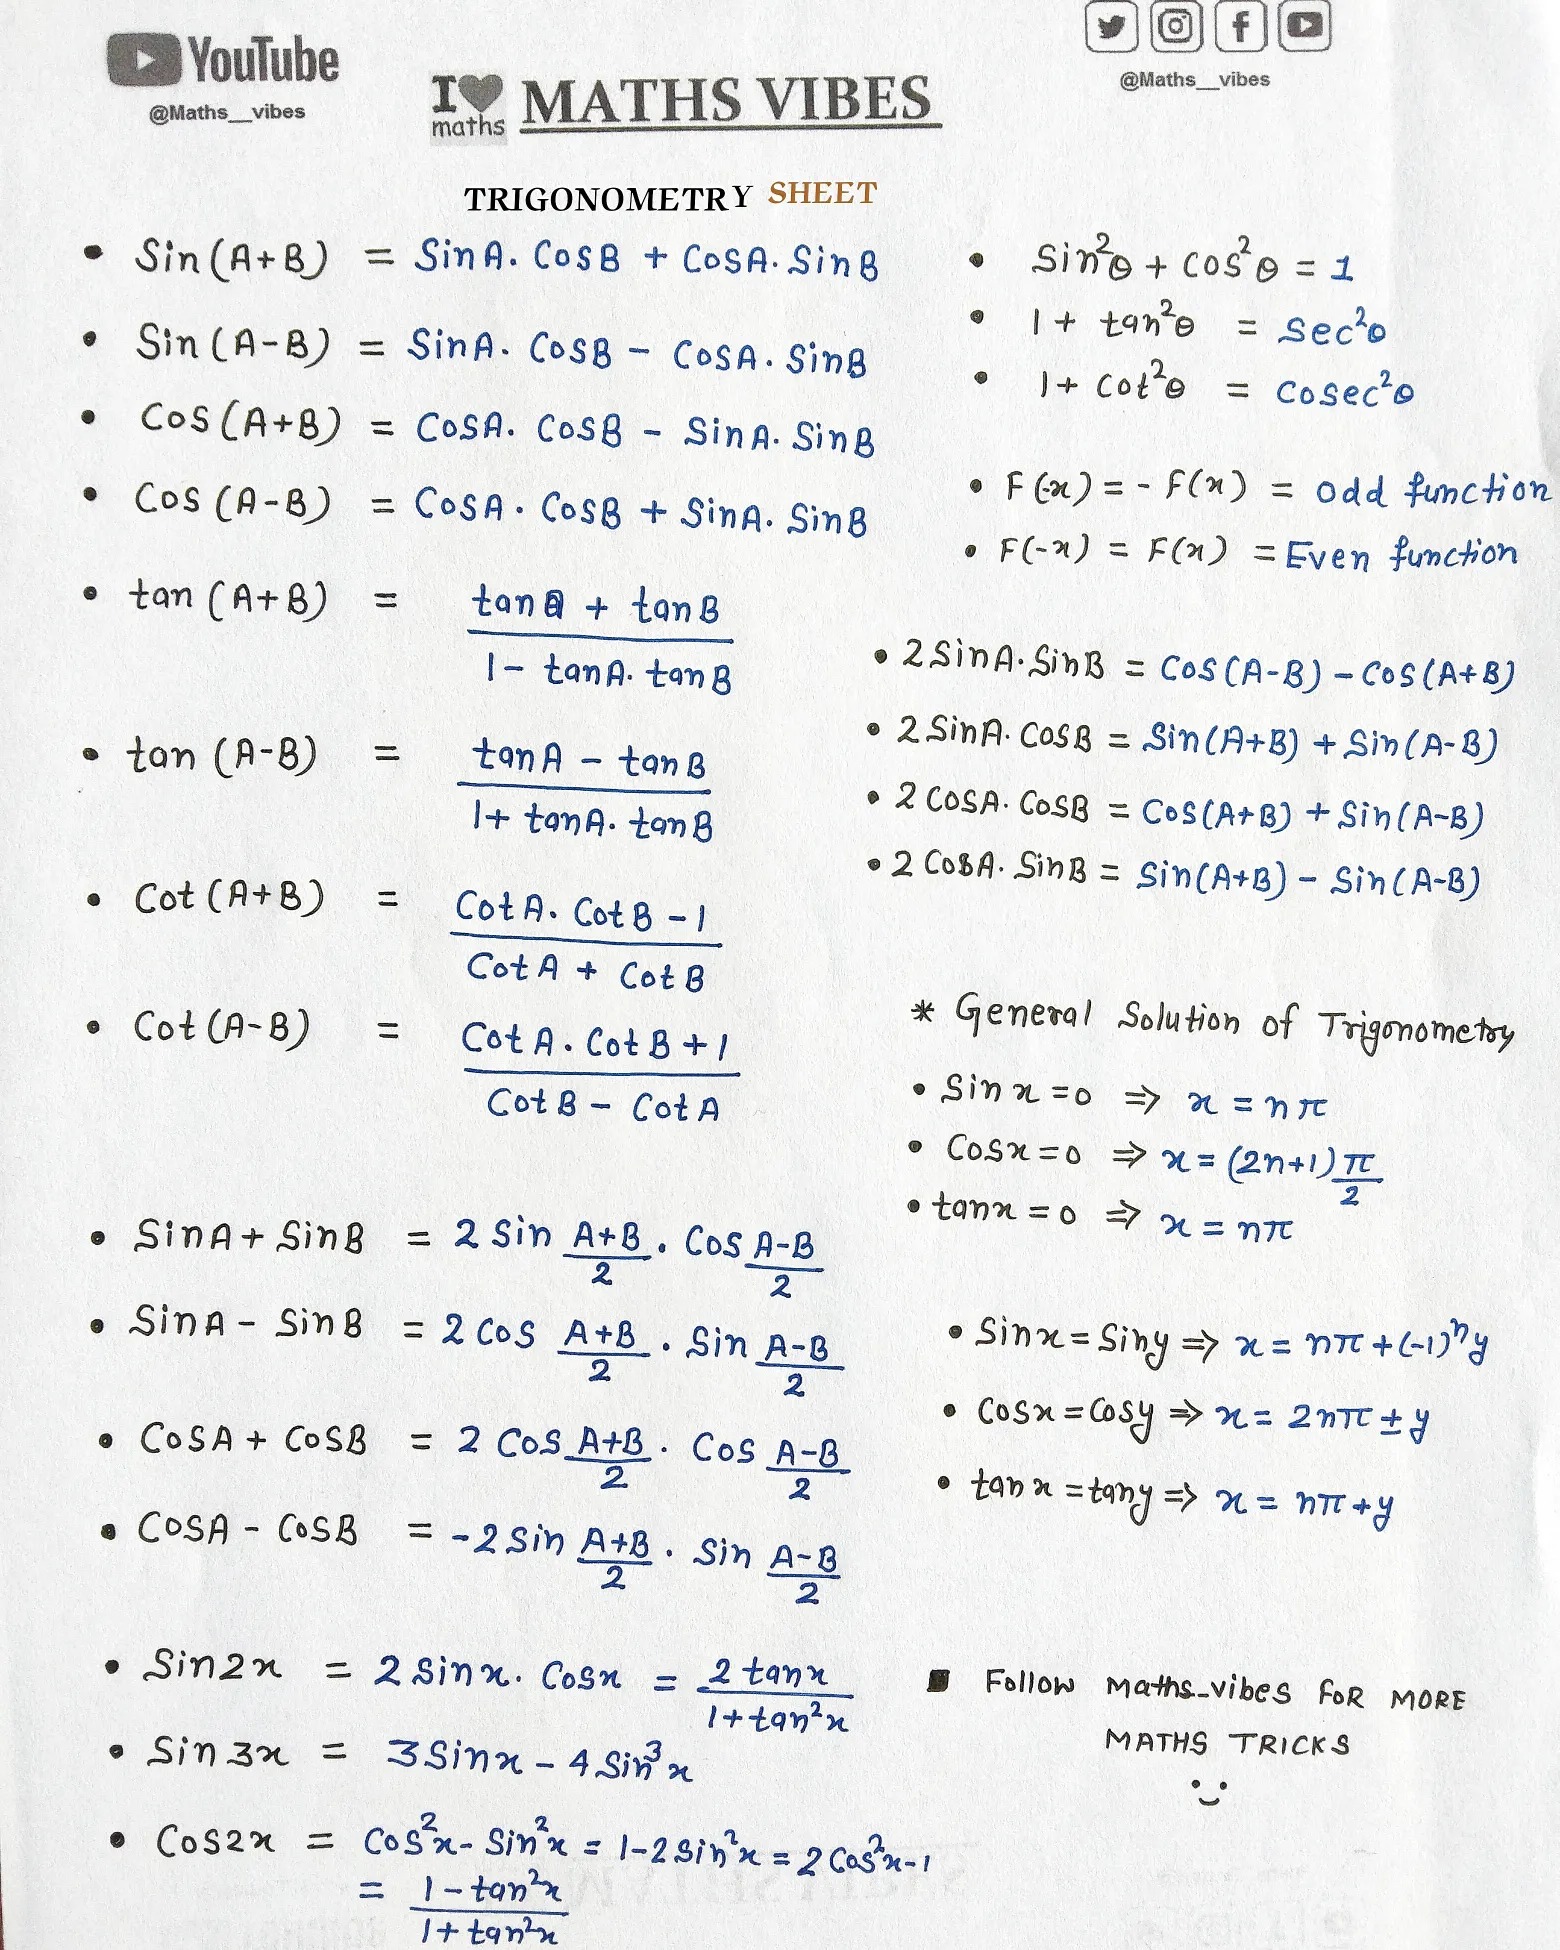 YouTube
@Maths__vibes
I
maths
MATHS VIBES
@Maths__vibes
TRIGONOMETRY SHEET
• Sin(A+B) = SinA. CosB + CosA. SinB
• Sin(A-B) = SinA. CosB - CosA. SinB
• Cos(A+B) = CosA. CosB - SinA. SinB
• Cos(A-B) = CosA. CosB + SinA. SinB
• tan(A+B) = tanA + tanB
1 - tanA. tanB
• tan(A-B) = tanA - tanB
1 + tanA. tanB
• Cot(A+B) = CotA. CotB - 1
CotA + CotB
• Cot(A-B) = CotA. CotB + 1
CotB - CotA
• SinA + SinB = 2 Sin A+B/2 . Cos A-B/2
• SinA - SinB = 2 Cos A+B/2 . Sin A-B/2
• CosA + CosB = 2 Cos A+B/2 . Cos A-B/2
• CosA - CosB = -2 Sin A+B/2 . Sin A-B/2
• Sin2x = 2 Sinx. Cosx = 2 tanx
1 + tan²x
• Sin3x = 3 Sinx - 4 Sin³x
• Cos2x = Cos²x - Sin²x = 1 - 2 Sin²x = 2 Cos²x - 1
= 1 - tan²x
1 + tan²x
• Sin²θ + Cos²θ = 1
• 1 + tan²θ = Sec²θ
• 1 + Cot²θ = Cosec²θ
• F(-x) = - F(x) = odd function
• F(-x) = F(x) = Even function
• 2 SinA. SinB = Cos(A-B) - Cos(A+B)
• 2 SinA. CosB = Sin(A+B) + Sin(A-B)
• 2 CosA. CosB = Cos(A+B) + Sin(A-B)
• 2 CosA. SinB = Sin(A+B) - Sin(A-B)
* General Solution of Trigonometry
• Sin x = 0 ⇒ x = nπ
• Cosx = 0 ⇒ x = (2n+1) π/2
• tanx = 0 ⇒ x = nπ
• Sinx = Siny ⇒ x = nπ + (-1)ⁿy
• Cosx = Cosy ⇒ x = 2nπ ± y
• tanx = tany ⇒ x = nπ + y
Follow Maths_vibes FOR MORE
MATHS TRICKS